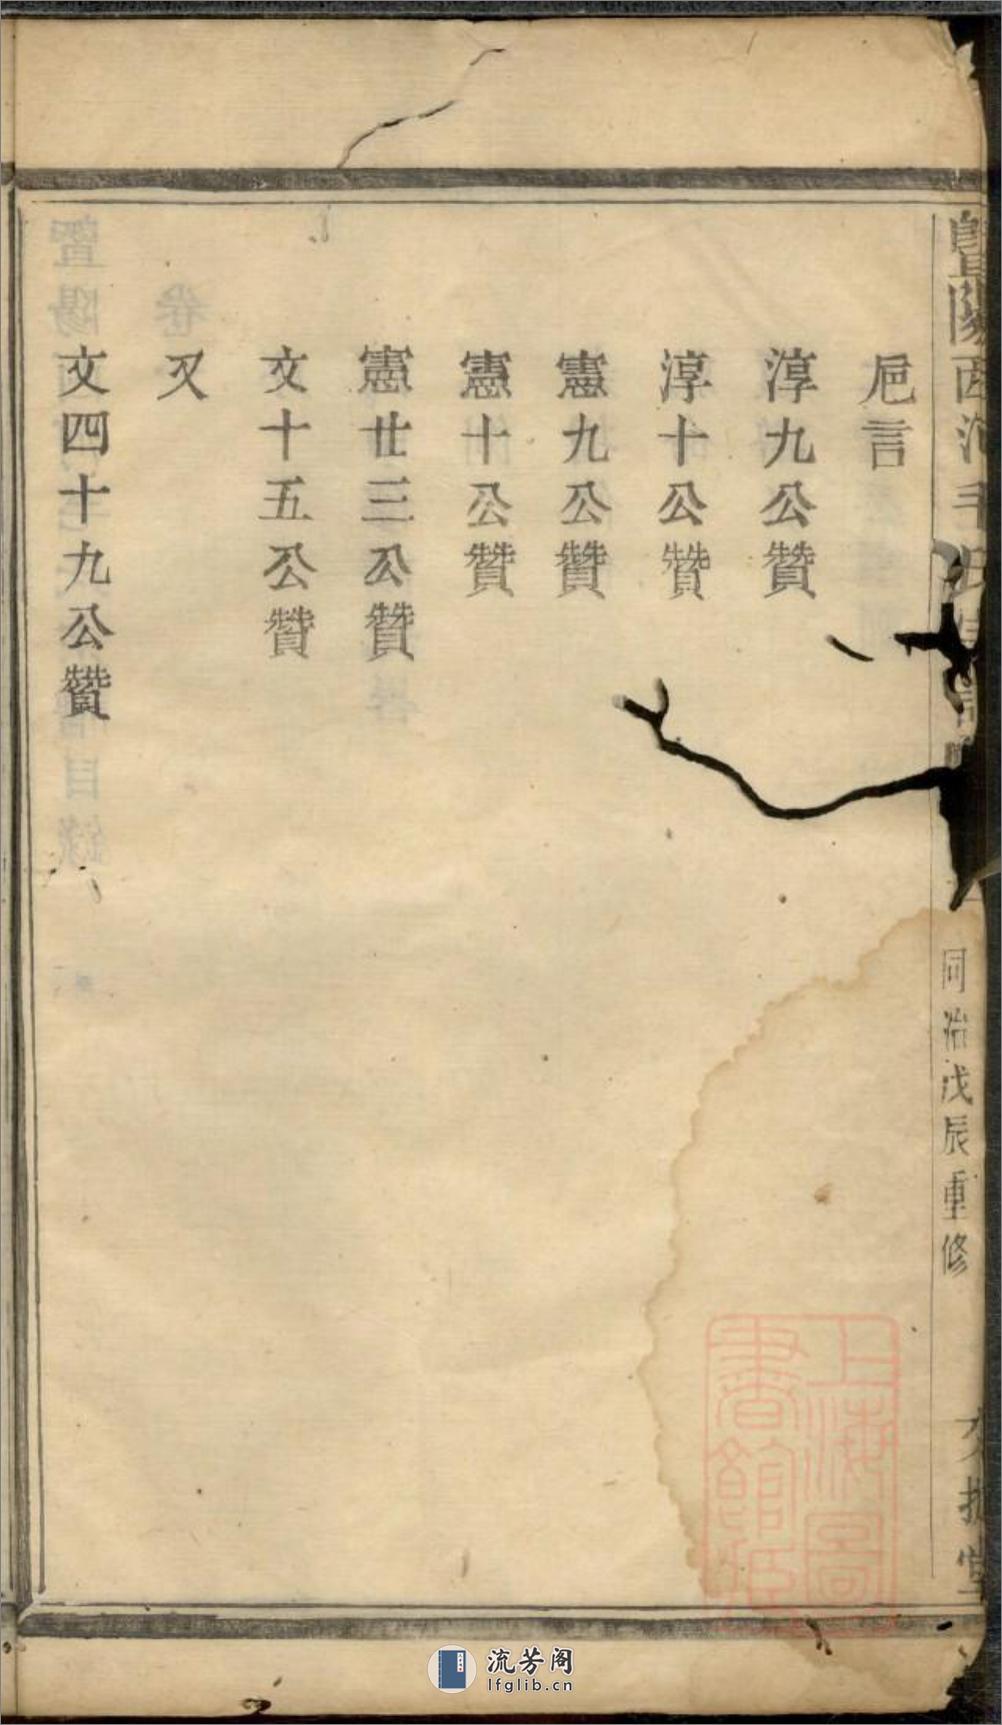 暨陽西河毛氏
同治戊辰重修
卮言
淳九公贊
淳十公贊
憲九公贊
憲十公贊
憲廿三公贊
文十五公贊
又
文四十九公贊
上海圖書館藏
流芳阁
lfglib.cn